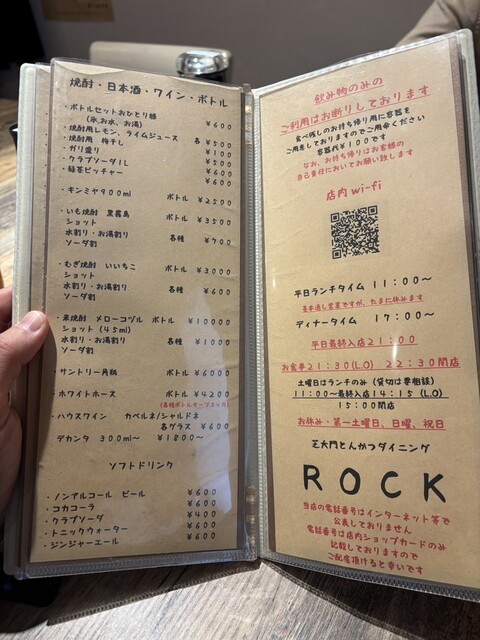 焼酎・日本酒・ワイン・ボトル
・ボトルセットおひとり様 ¥600
(氷、お水、お湯)
・焼酎用レモン、ライムジュース 各¥500
・焼酎用 梅干し ¥500
・ガリ盛り ¥100
・クラブソーダ1L ¥500
・緑茶ピッチャー ¥600
¥600
・キンミヤ900ml ボトル ¥2500
・いも焼酎 黒霧島 ボトル ¥3500
ショット
水割り・お湯割り 各種 ¥700
ソーダ割
・むぎ焼酎 いいちこ ボトル ¥3000
ショット
水割り・お湯割り 各種 ¥600
ソーダ割
・米焼酎 メローコヅル ボトル ¥10000
ショット(45ml)
水割り・お湯割り 各種 ¥1000
ソーダ割
・サントリー角瓶 ボトル ¥6000
・ホワイトホース ボトル ¥4200
(各種ボトルキープ3ヶ月)
・ハウスワイン カベルネ/シャルドネ
各グラス ¥600
デカンタ 300ml〜 ¥1800〜
ソフトドリンク
・ノンアルコール ビール ¥600
・コカコーラ ¥600
・クラブソーダ ¥400
・トニックウォーター ¥600
・ジンジャーエール ¥600
飲み物のみの
ご利用はお断りしております
食べ残しのお持ち帰り用に容器を
ご用意しておりますのでご用命ください
容器代¥100です
なお、お持ち帰りはお客様の
自己責任においてお願い致します
店内 wi-fi
平日ランチタイム 11:00〜
基本通し営業ですが、たまに休みます
ディナータイム 17:00〜
平日最終入店21:00
お食事21:30(L.O) 22:30閉店
土曜日はランチのみ(貸切は要相談)
11:00〜最終入店14:15(L.O)
15:00閉店
お休み・第一土曜日、日曜、祝日
芝大門とんかつダイニング
ROCK
当店の電話番号はインターネット等で
公表しておりません
電話番号は店内ショップカードのみ
記載しておりますので
ご配慮頂けると幸いです